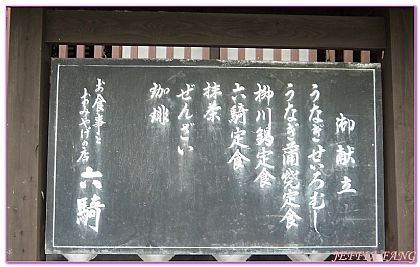 御献立
うなぎせいろむし
うなぎ蒲焼定食
柳川鍋定食
六騎定食
抹茶
ぜんざい
珈琲
お食事と
おみやげの店
六騎
JEFFLY FANG